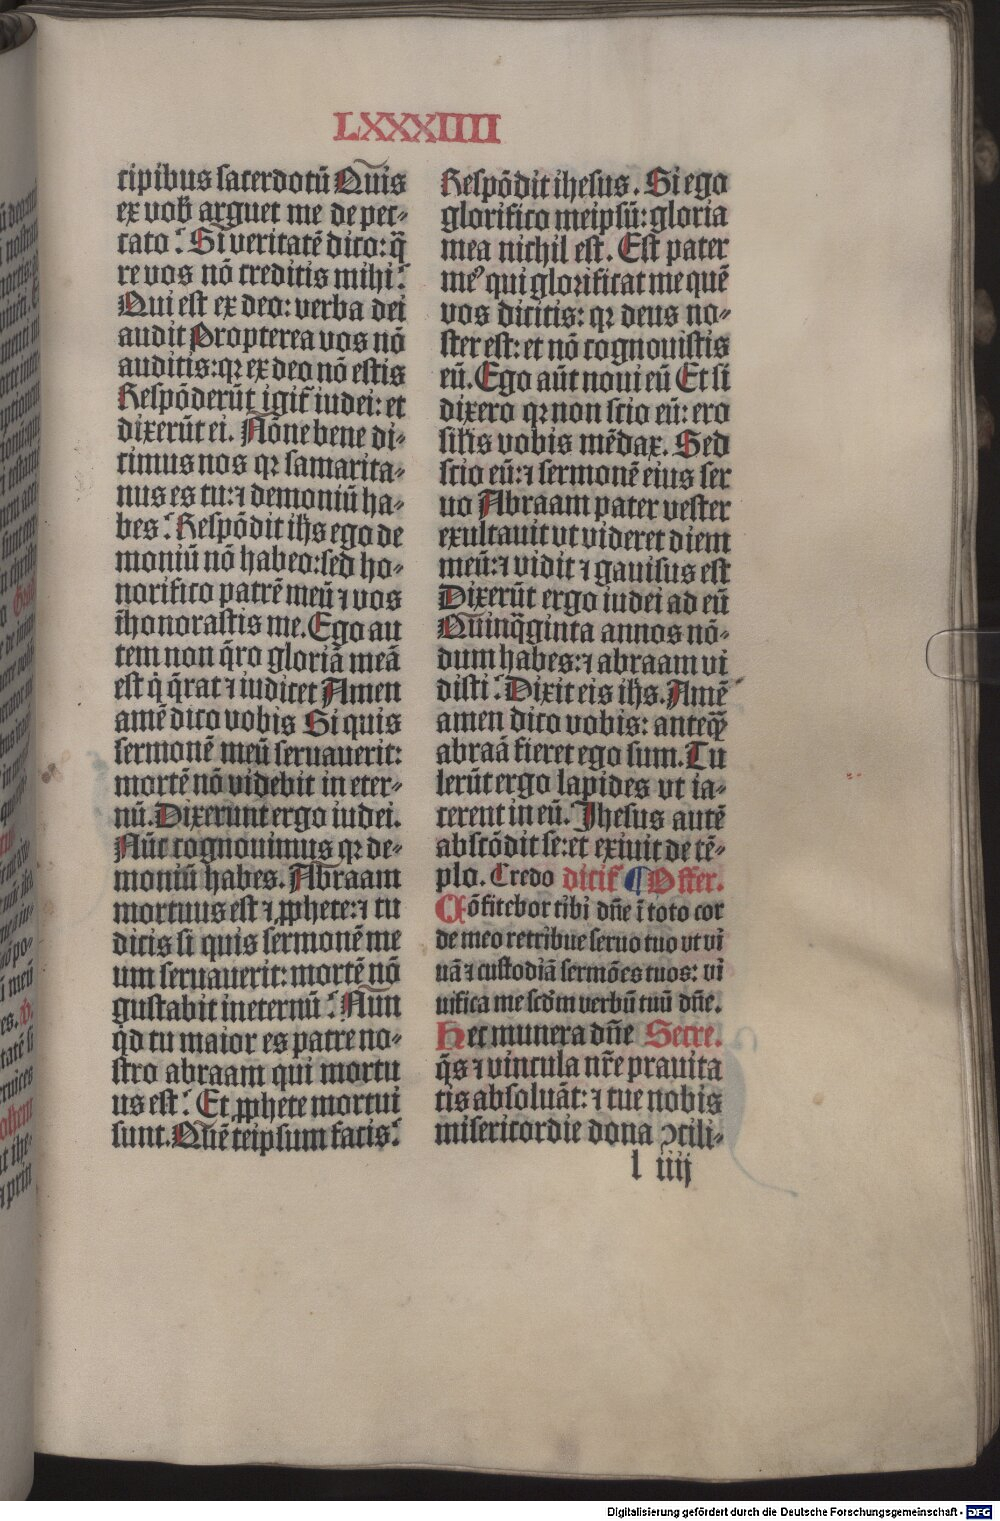 LXXXIIII
cipibus sacerdotū Quis
ex vob̄ arguet me de pec-
cato? Si veritatē dico: q̄
re vos nō creditis mihi?
Qui est ex deo: verba dei
audit Propterea vos nō
auditis: qꝛ ex deo nō estis
Respōderūt igit̄ iudei: et
dixerūt ei. Nōne bene di-
cimus nos qꝛ samarita-
nus es tu: ⁊ demoniū ha-
bes? Respōdit ih̄s ego de
moniū nō habeo: sed ho-
norifico patrē meū ⁊ vos
īhonorastis me. Ego au
tem non q̄ro gloriā meā
est q̇ q̄rat ⁊ iudicet Amen
amē dico vobis Si quis
sermonē meū seruauerit:
mortē nō videbit in eter-
nū. Dixerunt ergo iudei.
Nūc cognouimus qꝛ de-
moniū habes. Abraam
mortuus est ⁊ ꝓphete: ⁊ tu
dicis si quis sermonē me
um seruauerit: mortē nō
gustabit in eternū? Nun
qd̄ tu maior es patre no-
stro abraam qui mortu
us est? Et ꝓphete mortui
sunt. Quē teipsum facis?
Respōdit ihesus. Si ego
glorifico meipsū: gloria
mea nichil est. Est pater
meꝰ qui glorificat me quē
vos dicitis: qꝛ deus no-
ster est: et nō cognouistis
eū. Ego aūt noui eū Et si
dixero qꝛ non scio eū: ero
sil̄is vobis mēdax. Sed
scio eū: ⁊ sermonē eius ser
uo Abraam pater vester
exultauit vt videret diem
meū: ⁊ vidit ⁊ gauisus est
Dixerūt ergo iudei ad eū
Quinq̄ginta annos nō-
dum habes: ⁊ abraam vi
disti? Dixit eis ih̄s. Amē
amen dico vobis: anteqꝫ̄
abraā fieret ego sum. Tu
lerūt ergo lapides vt ia-
cerent in eū. Jhesus autē
abscōdit se: et exiuit de tē-
plo. Credo dicit̄ ¶ Offer.
Cōfitebor tibi dn̄e ī toto cor
de meo retribue seruo tuo vt vi
uā ⁊ custodiā sermōes tuos: vi
uifica me scd̄m verbū tuū dn̄e.
Hec munera dn̄e Secre.
q̄s ⁊ vincula nr̄e prauita
tis absoluāt: ⁊ tue nobis
misericordie dona ↄcili-
l iiij
Digitalisierung gefördert durch die Deutsche Forschungsgemeinschaft - DFG